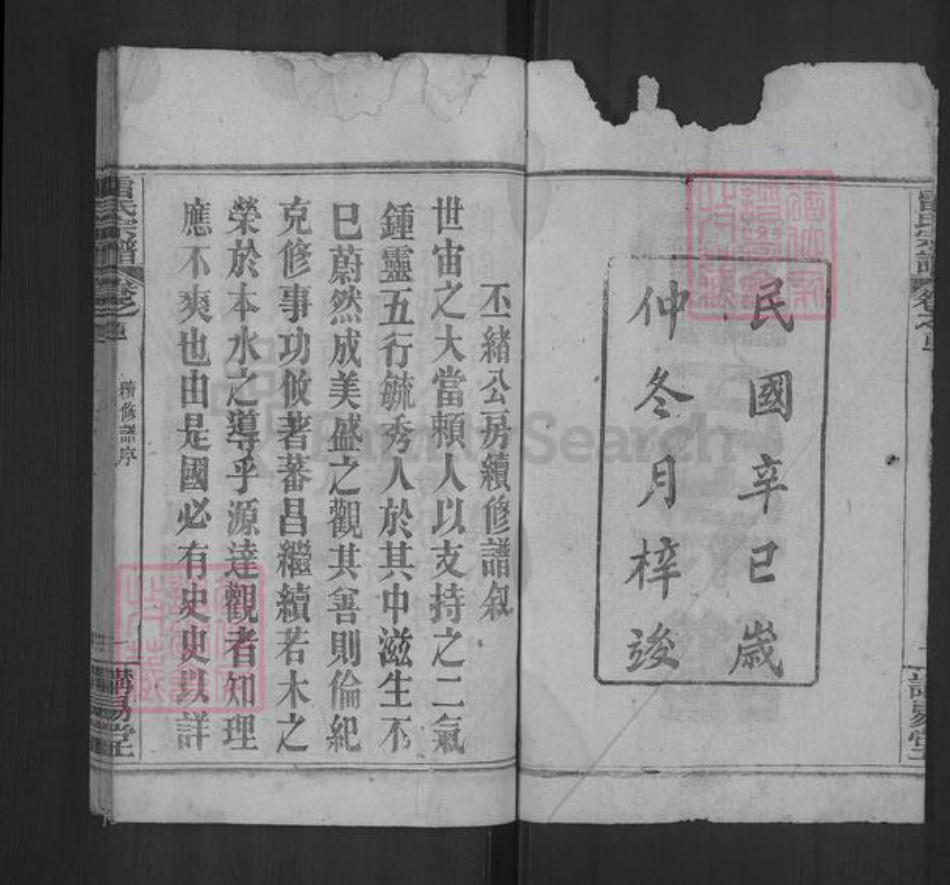 民國辛巳歲
仲冬月梓竣
雷氏宗譜
講易堂
丕緒公房續修譜叙
世宙之大當賴人以支持之二氣
鍾靈五行毓秀人於其中滋生不
已蔚然成美盛之觀其善則倫紀
克修事功攸著蕃昌繼續若木之
榮於本水之導乎源達觀者知理
應不爽也由是國必有史史以詳
雷氏宗譜
卷之首
續修譜序
一
講易堂
FamilySearch